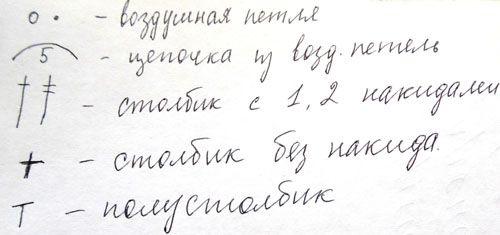 o • - воздушная петля
5 - цепочка из возд. петель
- столбик с 1, 2 накидами
+ - столбик без накида.
T - полустолбик